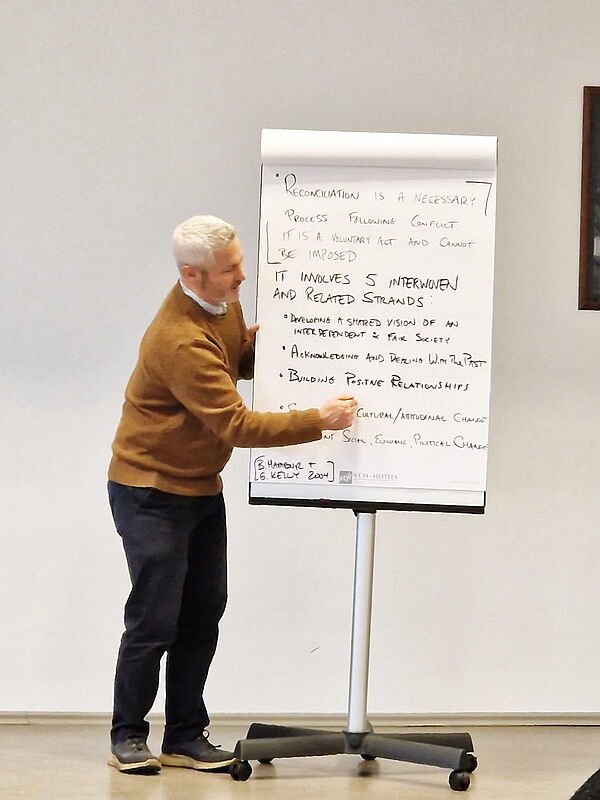 • RECONCILIATION IS A NECESSARY
PROCESS FOLLOWING CONFLICT.
IT IS A VOLUNTARY ACT AND CANNOT
BE IMPOSED
IT INVOLVES 5 INTERWOVEN
AND RELATED STRANDS:
• DEVELOPING A SHARED VISION OF AN
INTERDEPENDENT & FAIR SOCIETY
• ACKNOWLEDGING AND DEALING WITH THE PAST
• BUILDING POSITIVE RELATIONSHIPS
• CULTURAL/ATTITUDINAL CHANGE
SOCIAL, ECONOMIC, POLITICAL CHANGE
[B. HAMBUR +
G. KELLY 2004]
VCH-HOTELS